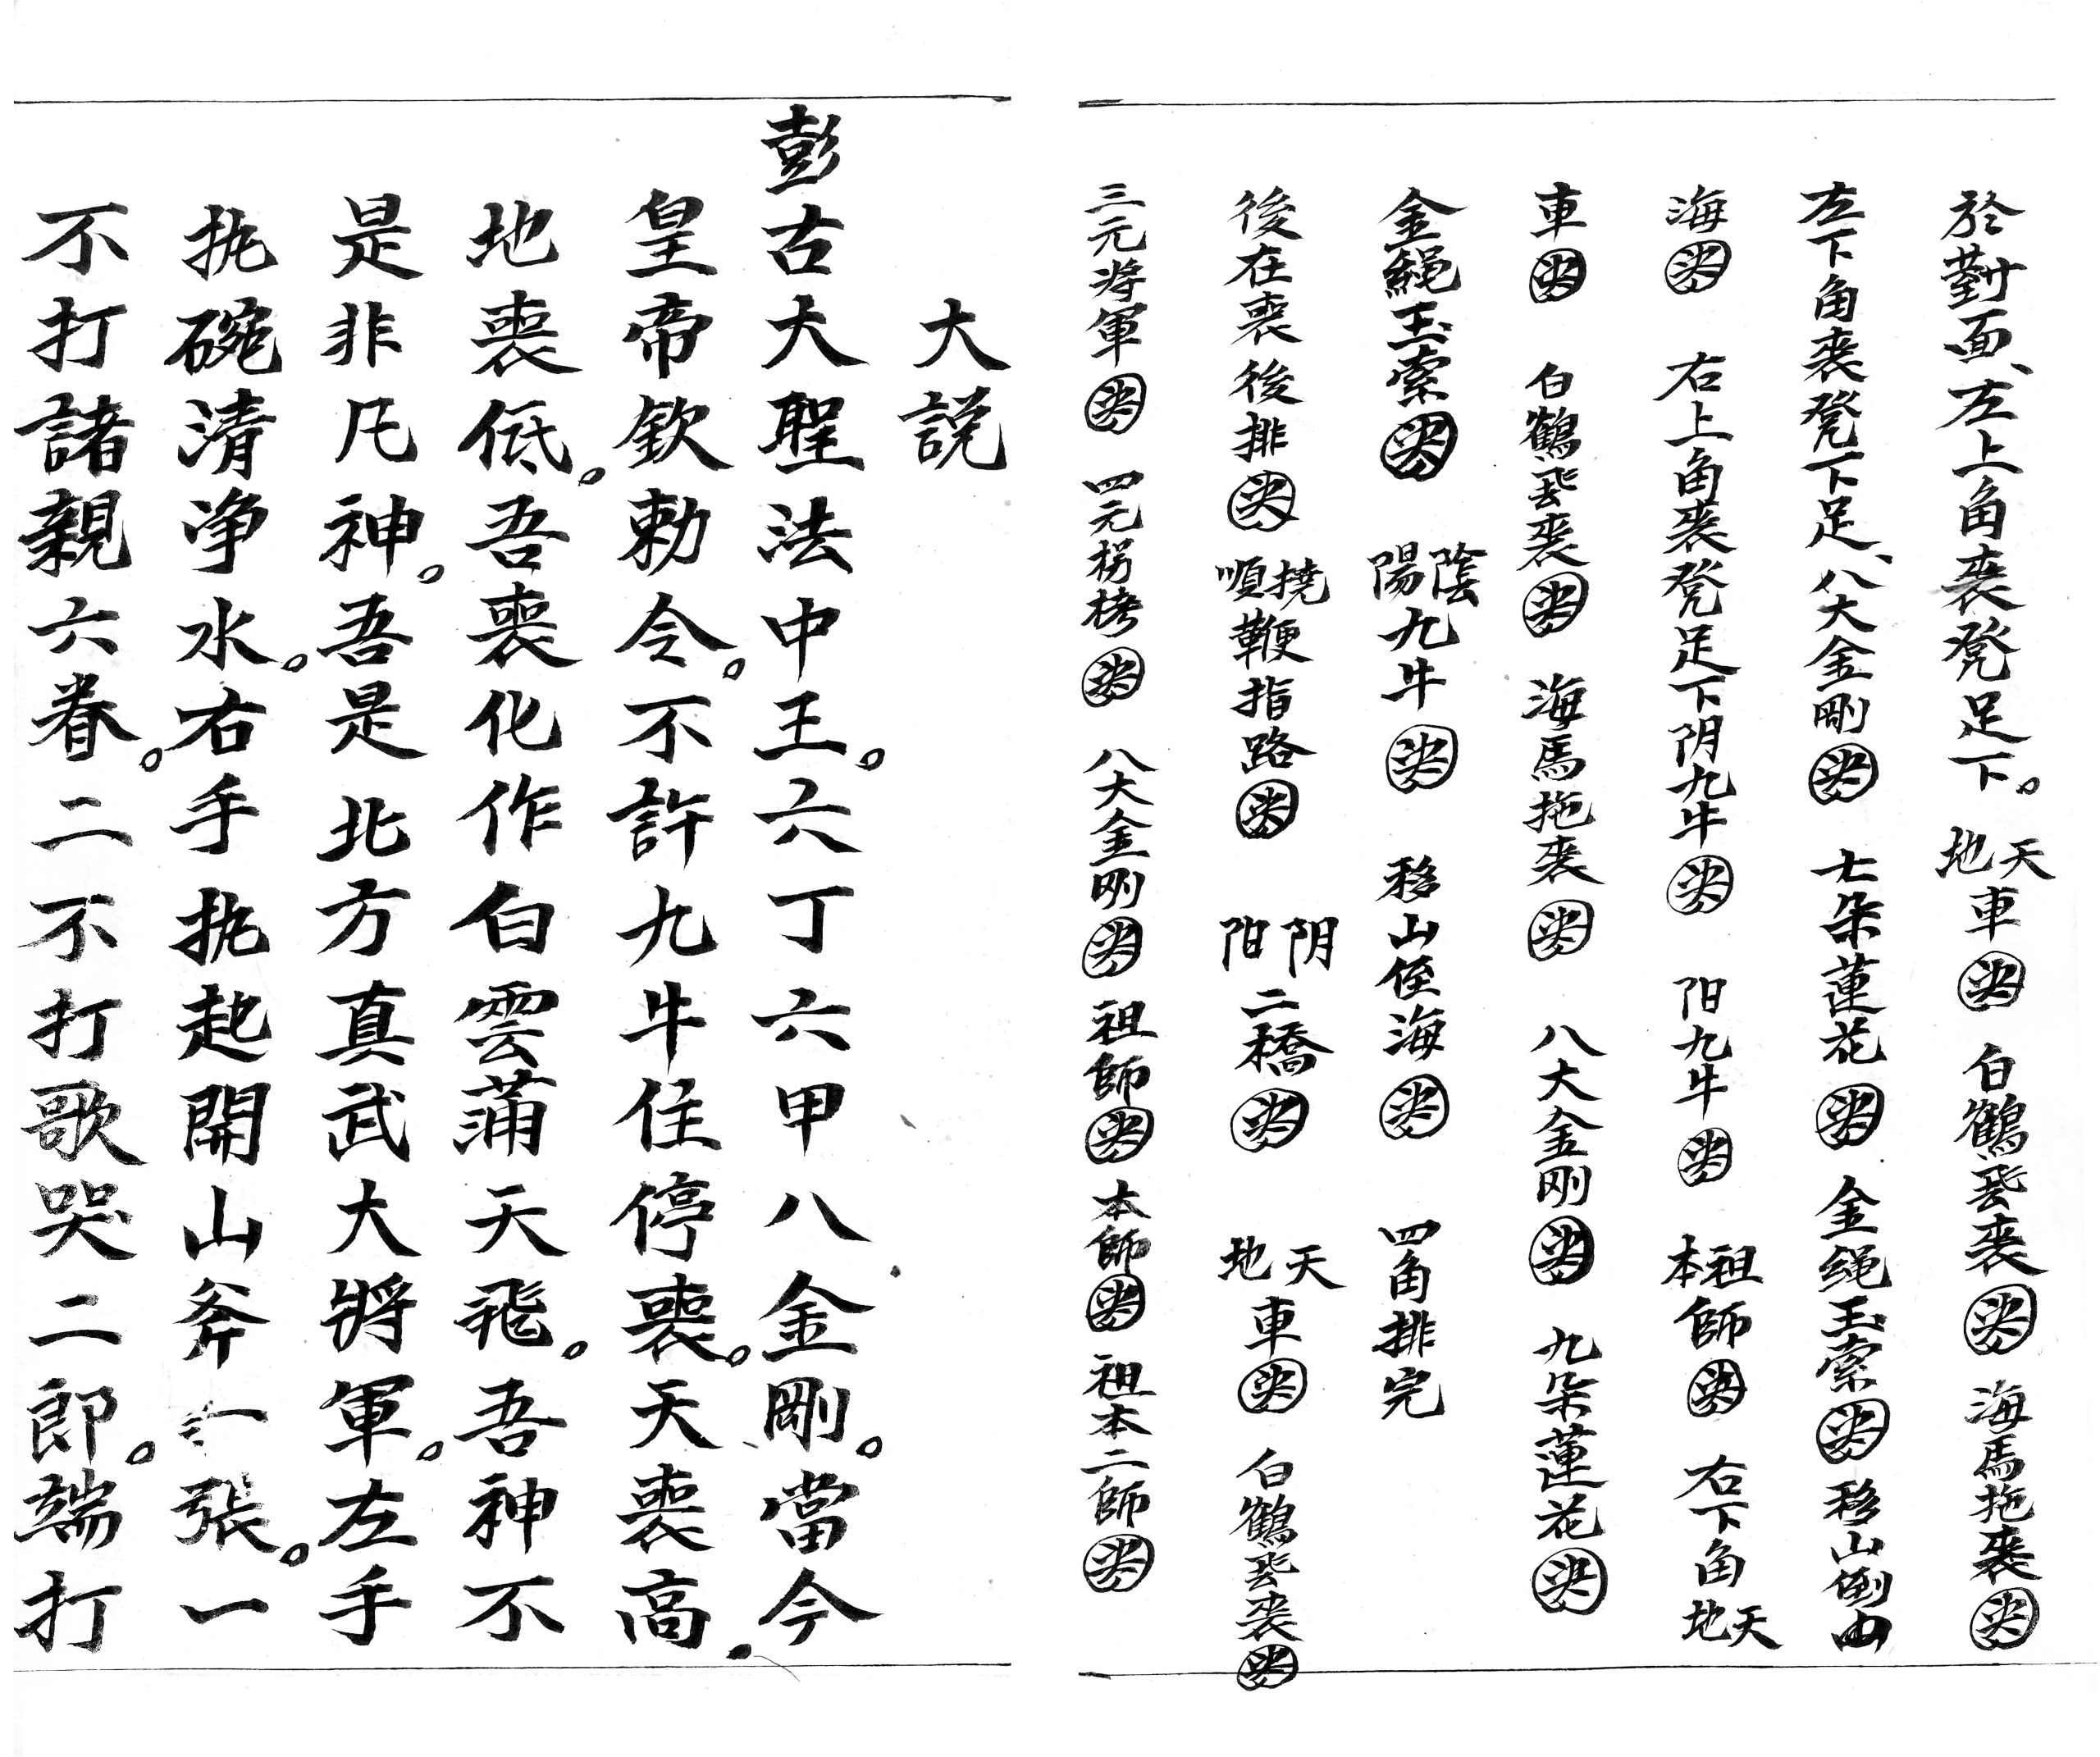 於對面、左上角喪凳足下。天地車 白鶴飛喪 海馬拖喪
左下角喪凳下足、八大金剛 七朵蓮花 金绳玉索 移山倒
海 右上角喪凳足下阴九牛 阳九牛 祖本師 右下角天地
車 白鶴飛喪 海馬拖喪 八大金刚 九朵蓮花
金繩玉索 陰陽九牛 移山侄海 四角排完
後在喪後排 撓順鞭指路 阴阳二橋 天地車 白鶴飛喪
三元将軍 四元拐栲 八大金刚 祖師 本師 祖本二師
大説
彭古大聖法中王。六丁六甲八金剛。當今
皇帝欽勅令。不許九牛住停喪。天喪高
地喪低。吾喪化作白雲蒲天飛。吾神不
是非凡神。吾是北方真武大將軍。左手
执碗清净水。右手执起開山斧一張。一
不打諸親六眷。二不打歌哭二郎。端打